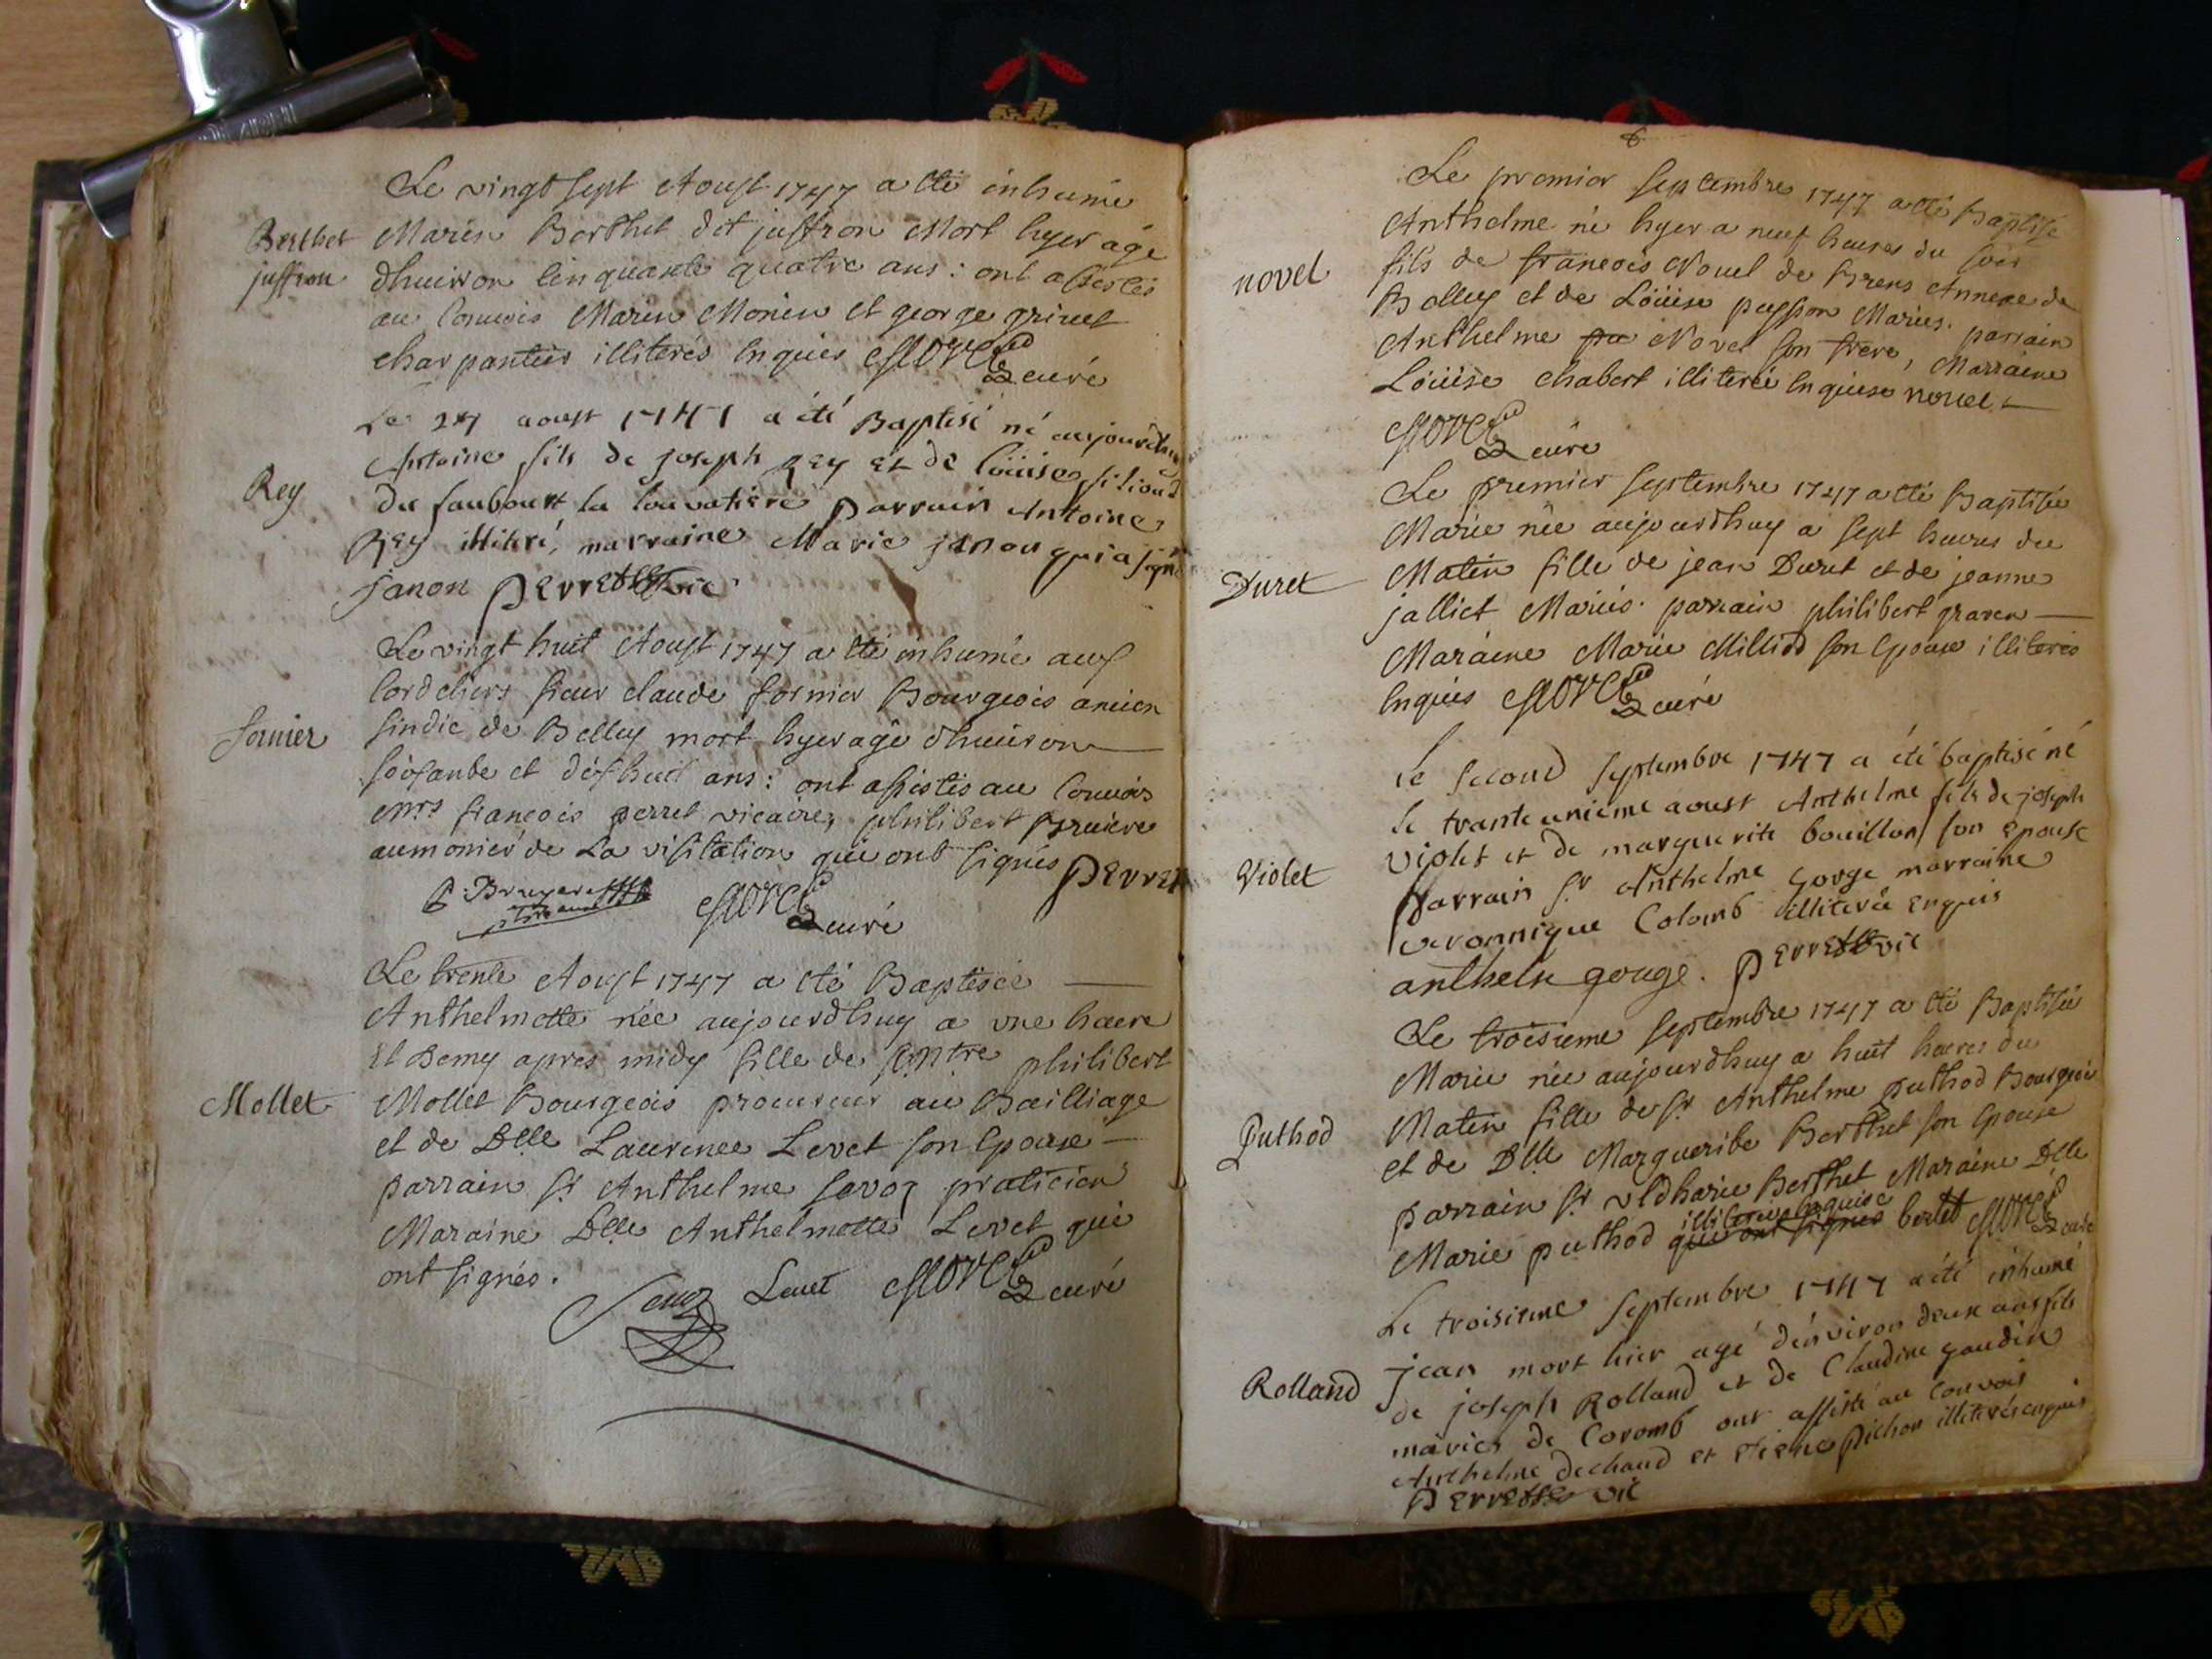 Le vingt sept Aoust 1747 a eté inhumé
Berthet Marin Berthet dit juffron Mort hyer agé
juffron dhuiron Cinquante quatre ans : ont assistés
au Convois Marin Monin et george grinet
charpantiers illiterés Enquis curé
Le 27 aoust 1747 a été Baptisé né aujourdhuy
Antoine fils de joseph Rey et de Loüise
Rey du faubourt la Louvatiere parrain Antoine
Rey illiteré, marraine Marie janon qui a signé
janon perret vic
Le vingt huit Aoust 1747 a eté inhumé aux
Cordeliers sieur claude fornier Bourgeois ancien
fornier sindic de Belley mort hyer agé dhuiron
soixante et dix huit ans : ont assistés au Convois
Mrs francois perret vicaire, philibert Bruiere
aumonier de La visitation qui ont signés perret
P Bruyere curé
Le trente Aoust 1747 a eté Baptisée
Anthelmette née aujourdhuy a une heure
Et Demy apres midy fille de philibert
Mollet Mollet Bourgeois procureur au Bailliage
et de Dlle Laurence Levet son Epouse
parrain Sr Anthelme Savoy praticien
Maraine Dlle Anthelmette Levet qui
ont signés.
Levet curé
Le premier septembre 1747 a eté Baptisé
Anthelme né hyer a neuf heures du soir
novel fils de francois Novel de Brens Annexe de
Belley et de Loüise pusson Mariés. parrain
Anthelme Novel son frere, Marraine
Loüise chabert illiterée Enquise novel
curé
Le premier septembre 1747 a eté Baptisée
Marie née aujourdhuy a sept heures du
Duret Matin fille de jean Duret et de jeanne
jalliet Mariés. parrain philibert graven
Maraine Marie Milliod son Epouse illiterés
Enquis curé
Le second septembre 1747 a été baptisé né
le trante unième aoust Anthelme fils de joseph
Violet violet et de marguerite bouillon son epouse
parrain Sr Anthelme Gorge marraine
veronnique Colomb illiterée enquis
anthelm gouge. perret vic
Le troisieme septembre 1747 a eté Baptisée
Marie née aujourdhuy a huit heures du
Puthod Matin fille de Sr Anthelme puthod Bourgeois
et de Dlle Margueritte Berthet son Epouse
parrain Sr vldharic Berthet Maraine Dlle
illiterée Enquise
Marie puthod qui ont signés bertet curé
Le troisieme septembre 1747 a été inhumé
jean mort hier agé denviron deux ans fils
Rolland de joseph Rolland et de Claudine gaudin
mariés de Coromb ont assisté au convois
Anthelme dechaud et etiene pichon illiterés enquis
perret vic